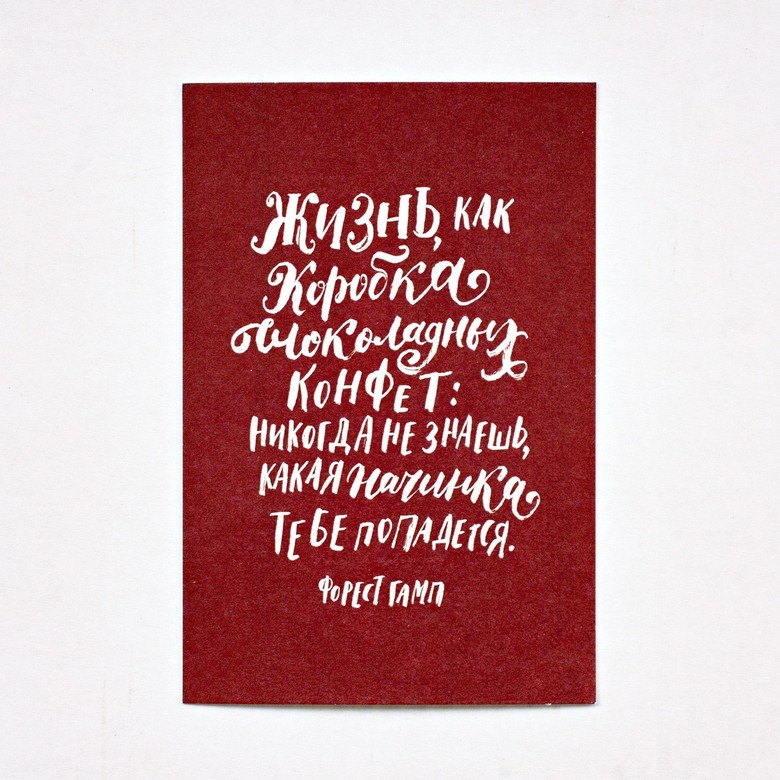 Жизнь, как
Коробка
шоколадных
конфет:
никогда не знаешь,
какая начинка
тебе попадется.
Форест Гамп